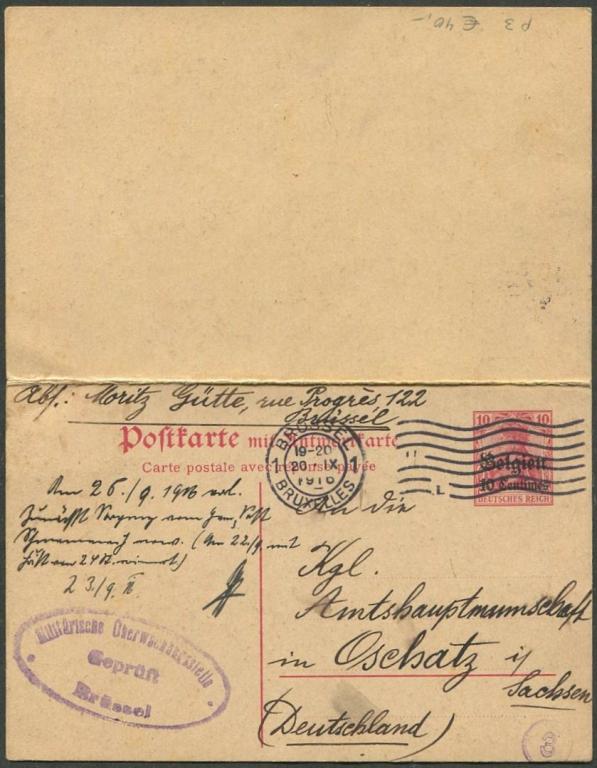 p 3 € 40,-
Abs.: Moritz Gütte, rue Progrès 122
Brüssel
Postkarte mit Antwortkarte
Carte postale avec réponse payée
BRÜSSEL
1 19-20 1
20-IX
1916
BRUXELLES
10 10
Belgien
10 Centimes
DEUTSCHES REICH
An die
Kgl.
Amtshauptmannschaft
in Oschatz i/
Sachsen
(Deutschland)
Am 26./9. 1916
(Am 22./9. mit
23/9.
Militärische Überwachungsstelle
Geprüft
Brüssel